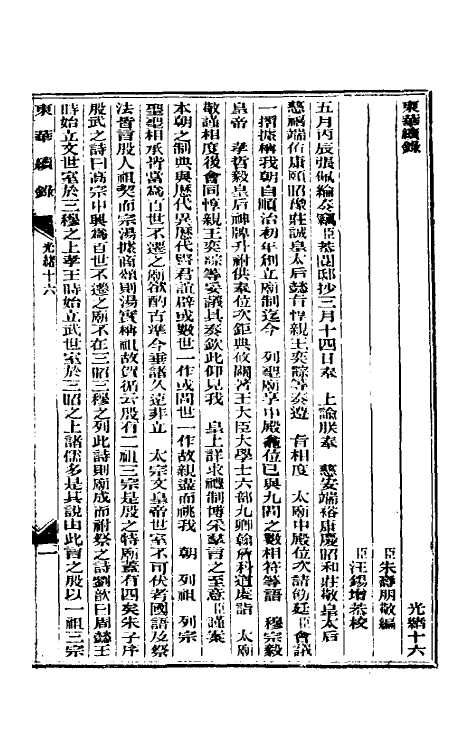 東華續錄
光緒十六
臣朱壽朋敬編
臣汪錫增恭校
五月丙辰張佩綸奏竊臣恭閱邸抄三月十四日奉　上諭朕奉　慈安端裕康慶昭和莊敬皇太后
慈禧端佑康頤昭豫莊誠皇太后懿旨惇親王奕誴等奏遵　旨相度　太廟中殿位次請飭廷臣會議
一摺據稱我朝自順治初年創立廟制迄今　列聖廟享中殿龕位已與九間之數相符等語　穆宗毅
皇帝　孝哲毅皇后神牌升祔供奉位次鉅典攸關著王大臣大學士六部九卿翰詹科道虔詣　太廟
敬謹相度後會同惇親王奕誴等妥議具奏欽此仰見我　皇上詳求禮制博采羣言之至意臣謹案
本朝之制典與歷代異歷代賢君誼辟或數世一作或間世一作故親盡而祧我　朝　列祖　列宗
聖聖相承皆當為百世不遷之廟欲酌古準今垂諸久遠非立　太宗文皇帝世室不可伏考國語及祭
法皆言殷人祖契而宗湯據商頌則湯實稱祖故賀循云殷有二祖三宗是殷之特廟蓋有四矣朱子序
殷武之詩曰高宗中興為百世不遷之廟不在三昭三穆之列此詩則廟成而祔祭之詩劉歆曰周懿王
時始立文世室於三穆之上孝王時始立武世室於三昭之上諸儒多是其說由此言之殷以一祖三宗
東華續錄
光緒十六
一